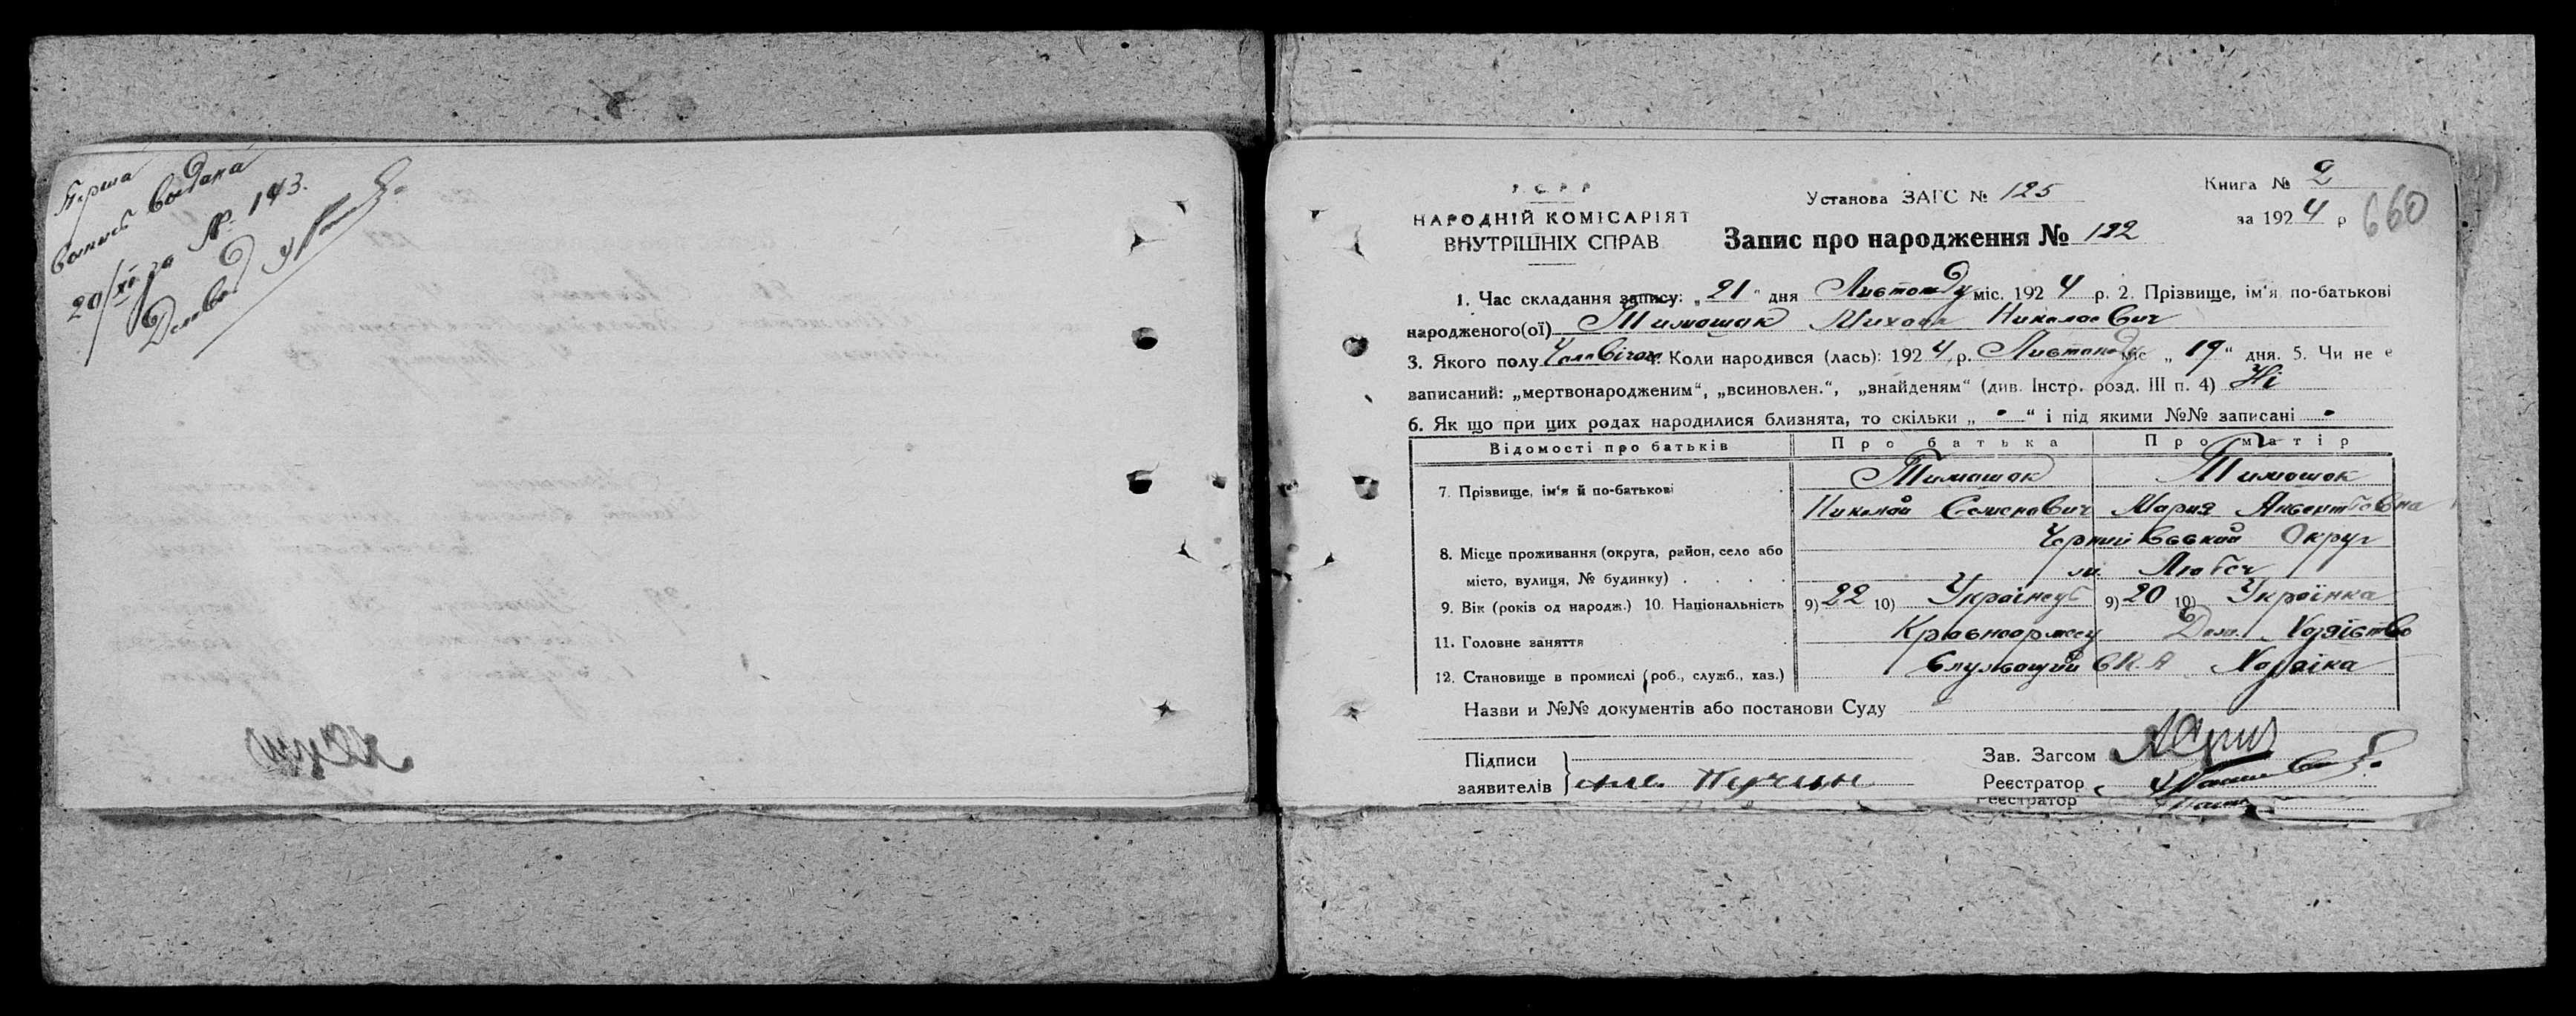 Перша
выпись выдана
20/XI за №. 143.
Деловод
У.С.Р.Р.
НАРОДНІЙ КОМІСАРІЯТ
ВНУТРІШНІХ СПРАВ
Установа ЗАГС № 125
Запис про народження № 122
Книга № 2
за 1924 р
660
1. Час складання запису: „21" дня Листопаду міс. 1924 р. 2. Прізвище, ім'я по-батькові
народженого(ої) Тимошок Михаил Николаевич
3. Якого полу Чоловічого 4. Коли народився (лась): 1924 р. Листопаду міс „19" дня. 5. Чи не є
записаний: „мертвонародженим", „всиновлен.", „знайденям" (див. Інстр. розд. III п. 4) Ні
6. Як що при цих родах народилися близнята, то скільки „ - " і під якими №№ записані -
Відомості про батьків Про батька Про матір
7. Прізвище, ім'я й по-батькові Тимошок Тимошок
Николай Семенович Мария
8. Місце проживання (округа, район, село або Чернигівський Округ
місто, вулиця, № будинку) м. Любеч
9. Вік (років од народж.) 10. Національність 9) 22 10) Українець 9) 20 10) Українка
11. Головне заняття Красноармеец Дом. Хозяїство
12. Становище в промислі (роб., служб., хаз.) Служащий Хозяїка
Назви и №№ документів або постанови Суду
Підписи
заявителів
Зав. Загсом
Реєстратор
Реєстратор